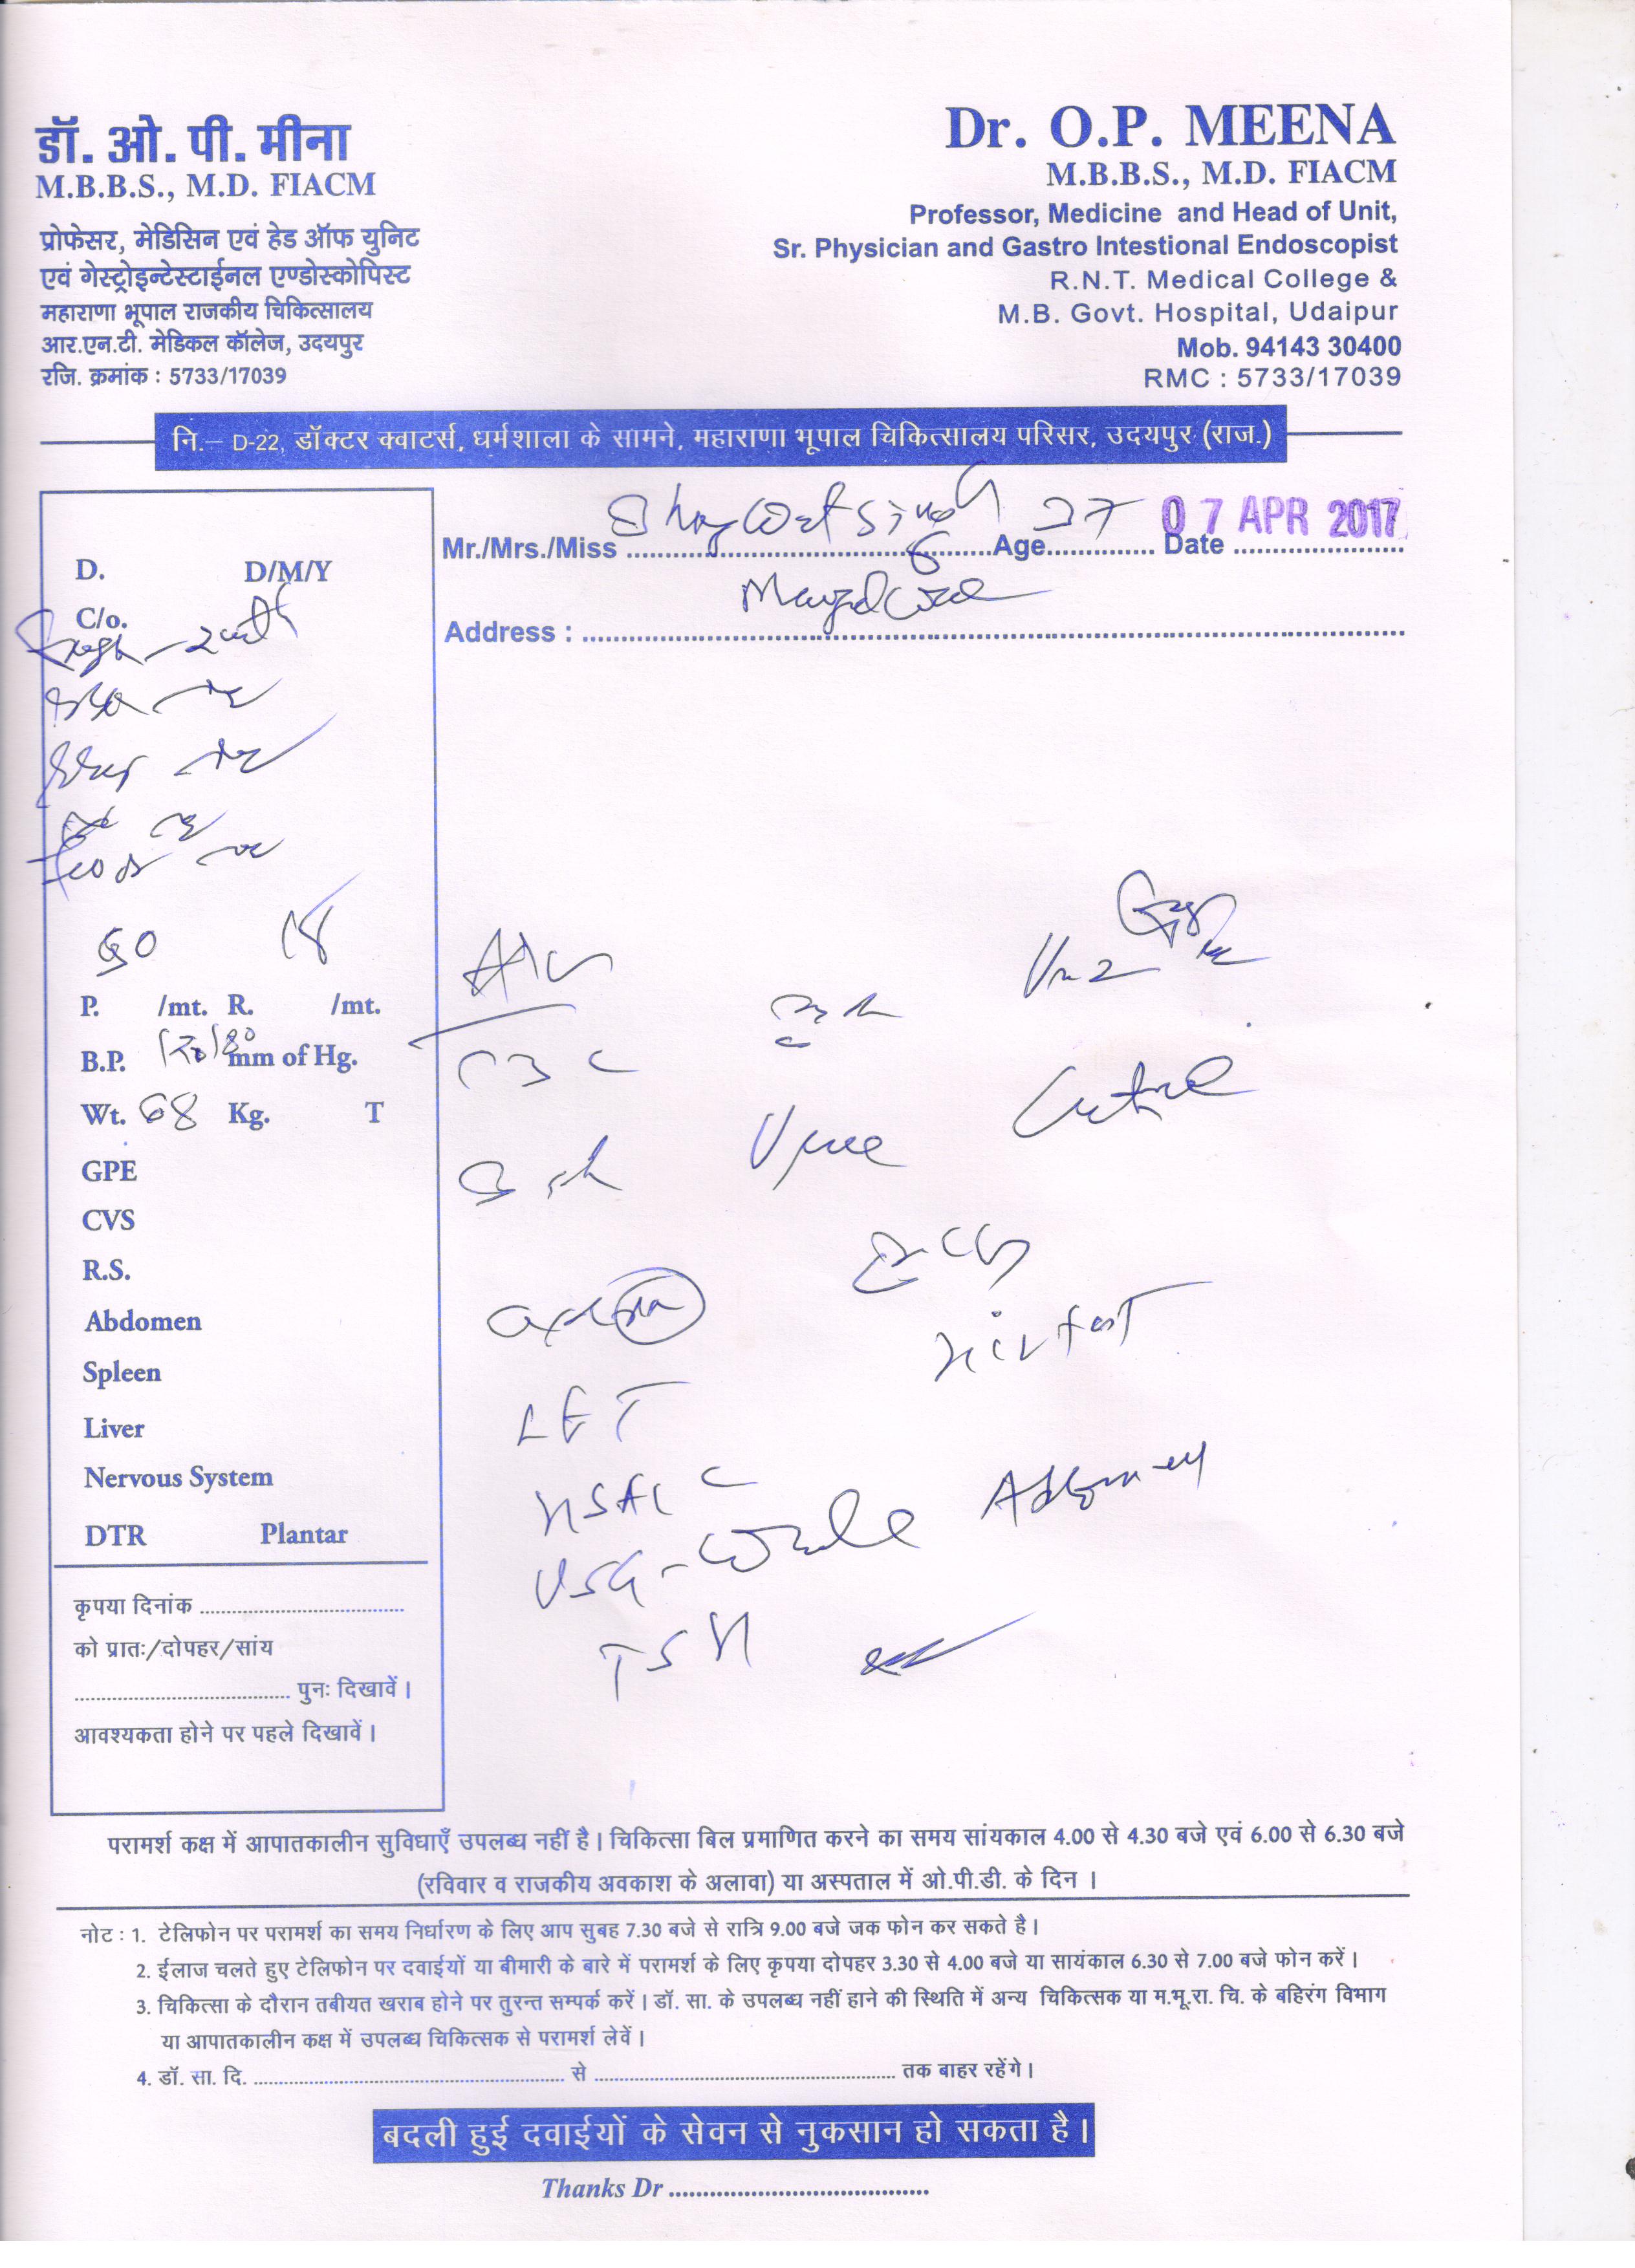 डॉ. ओ. पी. मीना
M.B.B.S., M.D. FIACM
प्रोफेसर, मेडिसिन एवं हेड ऑफ युनिट
एवं गेस्ट्रोइन्टेस्टाईनल एण्डोस्कोपिस्ट
महाराणा भूपाल राजकीय चिकित्सालय
आर.एन.टी. मेडिकल कॉलेज, उदयपुर
रजि. क्रमांक : 5733/17039
Dr. O.P. MEENA
M.B.B.S., M.D. FIACM
Professor, Medicine and Head of Unit,
Sr. Physician and Gastro Intestional Endoscopist
R.N.T. Medical College &
M.B. Govt. Hospital, Udaipur
Mob. 94143 30400
RMC : 5733/17039
नि.– D-22, डॉक्टर क्वाटर्स, धर्मशाला के सामने, महाराणा भूपाल चिकित्सालय परिसर, उदयपुर (राज.)
Mr./Mrs./Miss Bhagwat Singh Age 27 Date 07 APR 2017
Address :
D. D/M/Y
C/o.
18
P. /mt. R. /mt.
B.P. 120/80 mm of Hg.
Wt. 68 Kg. T
GPE
CVS
R.S.
Abdomen
Spleen
Liver
Nervous System
DTR Plantar
CBC
Urine
ECG
HIV test
LFT
USG - whole Abdomen
TSH
कृपया दिनांक
को प्रातः/दोपहर/सांय
पुनः दिखावें।
आवश्यकता होने पर पहले दिखावें।
परामर्श कक्ष में आपातकालीन सुविधाएँ उपलब्ध नहीं है। चिकित्सा बिल प्रमाणित करने का समय सांयकाल 4.00 से 4.30 बजे एवं 6.00 से 6.30 बजे
(रविवार व राजकीय अवकाश के अलावा) या अस्पताल में ओ.पी.डी. के दिन ।
नोट : 1. टेलिफोन पर परामर्श का समय निर्धारण के लिए आप सुबह 7.30 बजे से रात्रि 9.00 बजे जक फोन कर सकते है।
2. ईलाज चलते हुए टेलिफोन पर दवाईयों या बीमारी के बारे में परामर्श के लिए कृपया दोपहर 3.30 से 4.00 बजे या सायंकाल 6.30 से 7.00 बजे फोन करें।
3. चिकित्सा के दौरान तबीयत खराब होने पर तुरन्त सम्पर्क करें। डॉ. सा. के उपलब्ध नहीं हाने की स्थिति में अन्य चिकित्सक या म.भू.रा. चि. के बहिरंग विमाग
या आपातकालीन कक्ष में उपलब्ध चिकित्सक से परामर्श लेवें।
4. डॉ. सा. दि. से तक बाहर रहेंगे।
बदली हुई दवाईयों के सेवन से नुकसान हो सकता है।
Thanks Dr